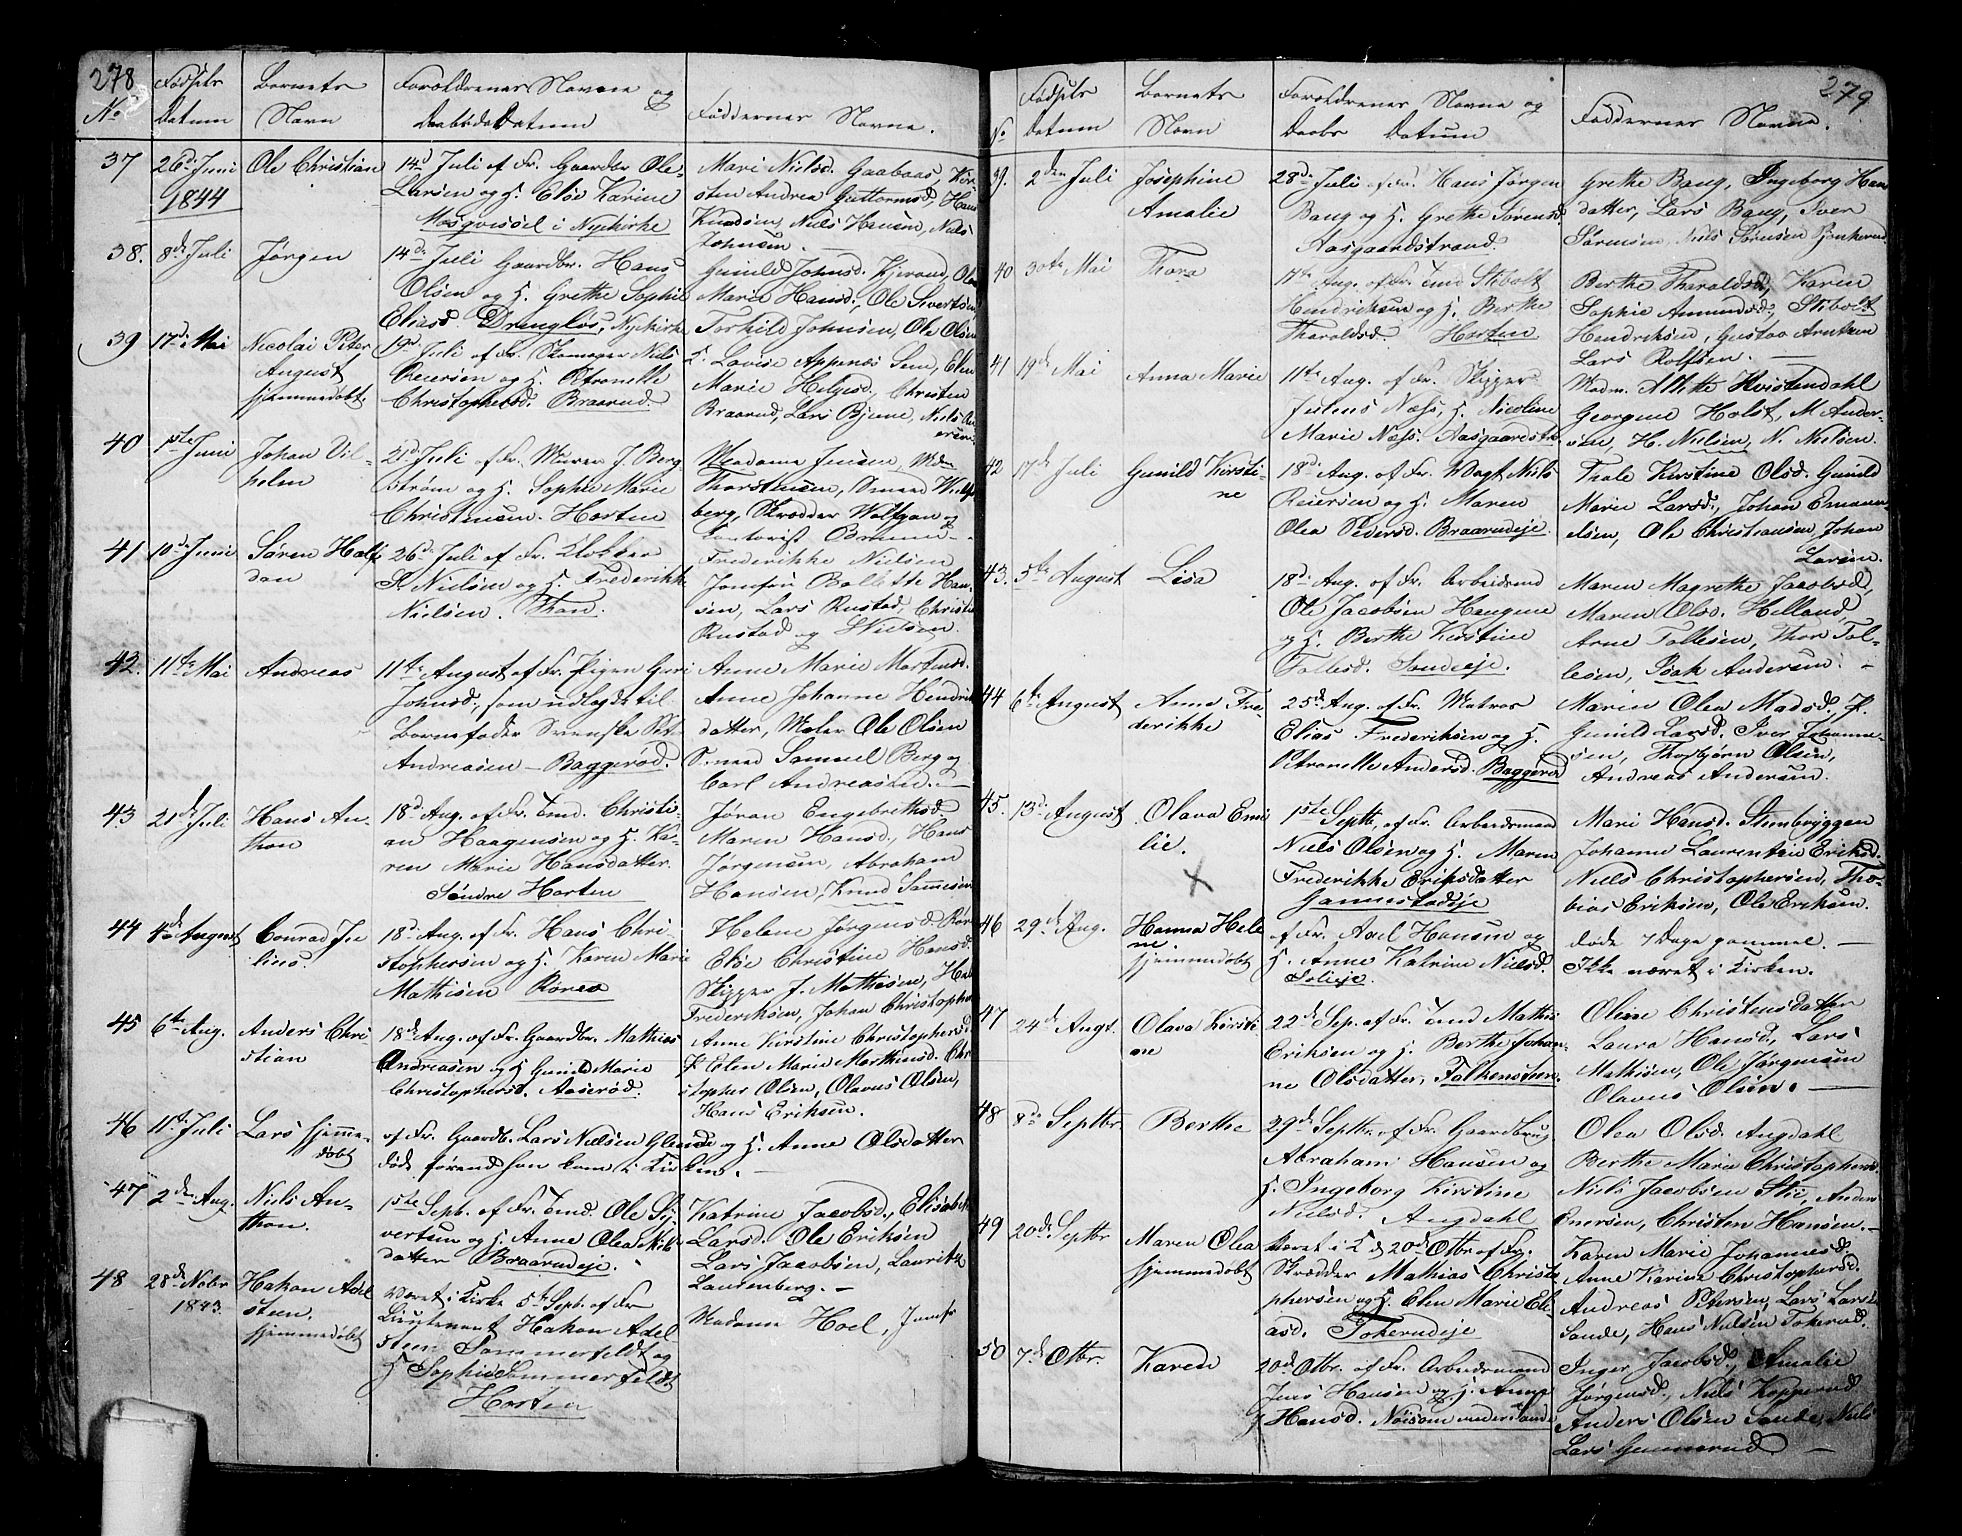 278
No
Fødsels
Datum
Barnets
Navn
Forældrenes Navne og
Daabs Datum
Faddernes Navne.
37
26d Juni
1844
Ole Christian
14d Juli af Fr. Gaardbr Ole
Larsen og H. Else Karine
i Nyekirke
Mari Nielsd.
sten Andrea Guttormsd, Hans
Knudsen, Niels Hansen, Niels
Johnsen.
38.
8de Juli
Jørgen
14d Juli Gaardbr. Hans
Olsen og H. Grethe Sophie
Eliasd. Nyekirke
Gunild Johnsd.
Marie Hansd, Ole Sivertsen
Torkild Johnsen, Ole Olsen
39
17d Mai
Nicolai Peter
August
hjemmedøbt
19d Juli af Fr. Skomager Niels
Reiersen og H. Petronelle
Christophersd. Braarud.
J. Lovise Sem, Elen
Marie Helgesd, Christen
Braarud, Lars Bjerne, Niels An
ersen
40
1ste Juni
Johan Vil-
helm
21d Juli af Fr. Murer J. Berg
strøm og H. Sophie Marie
Christensen. Horten
Madame Jensen, Mdm
Thorstensen, Smed
berg, Skrædder Wolfgan og
41
10d Juni
Søren Half
dan
26d Juli af Fr. Klokker
S. Nielsen og H. Frederikke
Nielsen.
Frederikke Nielsen
Jomfru Bollette Han-
sen, Lars Rustad, Christi
Rustad og S Nielsen.
42.
11te Mai
Andreas
11te August af Fr. Pigen Guri
Johnsd, som udlagde til
Barnefader Svenske Pet.
Andreasen – Baggerød.
Anne Marie Martinsd.
Anne Johanne Hendriks
datter, Maler Ole Olsen
Smed Samuel Berg og
Carl Andreasen. –
43
21de Juli
Hans An-
thon
18d Aug. af Fr. Tmd. Christi-
an Haagensen og H. Ka-
ren Marie Hansdatter.
Søndre Horten
Jøran Engebrethsd
Maren Hansd, Hans
Jørgensen, Abraham
Hansen, Knud Samuelsen
44
4de August
Conrad Ju
lius.
18d Aug. af Fr. Hans Chri
stophersen og H. Karen Marie
Mathisen Røren
Helene Jørgensd. Røre
Else Christine Hansd.
Skipper J. Mathisen,
Frederiksen, Johan Christopher
45
6te Aug.
Anders Chri
stian
18de Aug. af Fr. Gaardbr. Mathias
Andreasen og H Gunild Marie
Christophersd. Aaserød.
Anne Kirstine Christophersd
P. Elen Marie Marthinsd. Chri
stopher Olsen, Olavus Olsen,
Hans Eriksen.
46
11te Juli
Lars hjemme-
døbt
af Fr. Gaardb. Lars Nielsen Glenne og H. Anne Olsdatter
døde førend han kom i Kirken. –
47
2den Aug.
Niels An-
thon.
1ste Sept. af Fr. Tmd. Ole Sy
vertsen og H. Anne Olea Niels
datter Braarudeje.
Katrine Jacobsd., Elisabeth
Larsd. Ole Eriksen
Lars Jacobsen, Lauritz
Laurenberg. –
48
28de Nobr
1843.
Hakon Adel
steen.
hjemmedøbt
Været i Kirke 5te Sept. af Fr
Lieutenant Hakon Adel
steen Sommerfeldt og
H. Sophie Sommerfeldt
Horten
Madame Hoel, Jomfr
279
No
Fødsels
Datum
Barnets
Navn
Forældrenes Navne og
Daabs Datum
Faddernes Navne.
39.
2den Juli
Josephine
Amalie
28de Juli af Fr. Hans Jørgen
Bang og H. Grethe Sørensd
Aasgaardstrand.
Grethe Bang, Ingeborg Hans
datter, Lars Bang, Iver
Sørensen, Niels Sørensen
40
30te Mai
Thora
11te Aug. af Fr. Tmd Stebolt
Hendriksen og H. Berthe
Tharaldsd. Horten
Berthe Tharaldsd, Karen
Sophie Amundsd, Stebolt
Hendriksen, Gustav Arntzen
Lars Rolfsen. –
41
19de Mai
Anna Marie
11te Aug. af Fr. Skipper
Julens Næss, H. Nicoline
Marie Næss. Aasgaardstr.
Madm. Mette Kvistendahl
Georgine Holst, M Ander-
sen, H. Nielsen, N. Nielsen.
42
17de Juli
Gunild Kirsti-
ne
18d Aug. af Fr. Vogt Niels
Reiersen og H. Maren
Olea Pedersd. Braarudeje.
Thale Kirstine Olsd. Gunild
Marie Larsd, Johan Emanu
elsen, Ole Christiansen, Johan
Larsen.
43.
5te August
Lisa
18d Aug. af Fr. Arbeidsmd
Ole Jacobsen Haugene
og H. Berthe Kirstine
Tollesd. Sandeeje.
Maren Magrethe Jacobsd,
Maren Olsd. Helland,
Arne Tollesen, Thor Tol-
lesen, Isak Andersen. –
44
6te August
Anne Fre
derikke
25d Aug. af Fr. Matros
Elias Frederiksen og H.
Petronelle Andersd. Baggerød
Maren Olea Madsd. P.
Gunild Larsd. Iver Johanne-
sen, Thorbjørn Olsen,
Andreas Andersen.
45.
13de August
Olava Emi
lie.
X
1ste Septb. af Fr. Arbeidsmand
Niels Olsen og H. Maren
Frederikke Eriksdatter
Gannestadeje
Mari Hansd. Steenbryggen
Johanne Laurentze Eriksd.
Niels Christophersen, Tho-
bias Eriksen, Ole Eriksen.
46
29de Aug.
Hanna Hele
ne.
hjemmedøbt
af Fr. Axel Hansen og
H. Anne Katrine Nielsd.
Soleje.
døde 7 Dage gammel. –
Ikke været i Kirken.
47
24de Augt.
Olava Kirsti
ne
22de Sep. af Fr. Tmd Mathis
Eriksen og H. Berthe Johan-
ne Olsdatter, Falkensteen.
Oline Christensdatter
Laura Hansd, Lars
Mathisen, Ole Jørgensen
Olavus Olsen. –
48
8de Septbr.
Berthe
29de Septb. af Fr. Gaardbrug
Abraham Hansen og
H. Ingeborg Kirstine
Nielsd. Augdahl
Olea Olsd. Augdahl
Berthe Maria Christophersd.
Niels Jacobsen Stie, Anders
Enersen, Christen Hansen. –
49
20de Septbr
Maren Olea
hjemmedøbt
været i K d 20de Otbr af Fr.
Skrædder Mathias Christo
phersen og H. Elen Marie Eli
asd. Tokerudeje
Karen Marie Johannesd.
Anne Karine Christophersd.
Andreas Petersen, Lars Larsen
Sande, Hans Nielsen Tokerud.
50
7de Otbr.
Karen
20de Otbr. af Fr. Arbeidsmand
Jens Hansen og H. Anne
Hansd. Nøisom under Sande
Inger Jacobsd, Amalie
Jørgensd, Niels Kopperud
Anders Olsen Sande, Niels
Lars Gannerud –